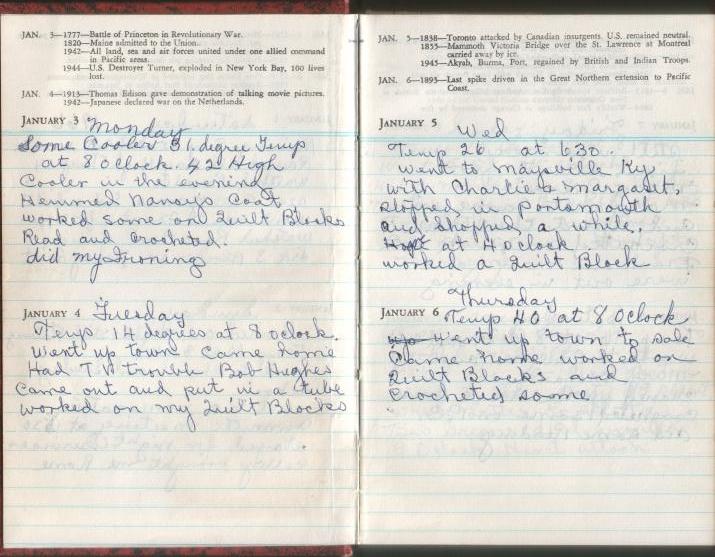 JAN. 3—1777—Battle of Princeton in Revolutionary War.
1820—Maine admitted to the Union.
1942—All land, sea and air forces united under one allied command
in Pacific areas.
1944—U.S. Destroyer Turner, exploded in New York Bay, 100 lives
lost.
JAN. 4—1913—Thomas Edison gave demonstration of talking movie pictures.
1942—Japanese declared war on the Netherlands.
JANUARY 3 Monday
Some Cooler 31. degree Temp
at 8 Oclock. 42 High
Cooler in the evening
Hemmed Nancys Coat
worked some on Quilt Blocks
Read and Crocheted.
did my Ironing
JANUARY 4 Tuesday
Temp 14 degrees at 8 oclock.
Went up town Came home
Had T.V trouble Bob Hughes
Came out and put in a tube
worked on my Quilt Blocks
JAN. 5—1838—Toronto attacked by Canadian insurgents. U.S. remained neutral.
1855—Mammoth Victoria Bridge over the St. Lawrence at Montreal
carried away by ice.
1945—Akyab, Burma, Port, regained by British and Indian Troops.
JAN. 6—1893—Last spike driven in the Great Northern extension to Pacific
Coast.
JANUARY 5 Wed
Temp 26 at 630.
went to Maysville Ky
with Charlie & Margaret,
stopped in Portsmouth
and Shopped a while.
at 4 Oclock
worked a Quilt Block
Thursday
JANUARY 6 Temp 40 at 8 Oclock
Went up town to sale
Came home worked on
Quilt Blocks and
Crocheted some